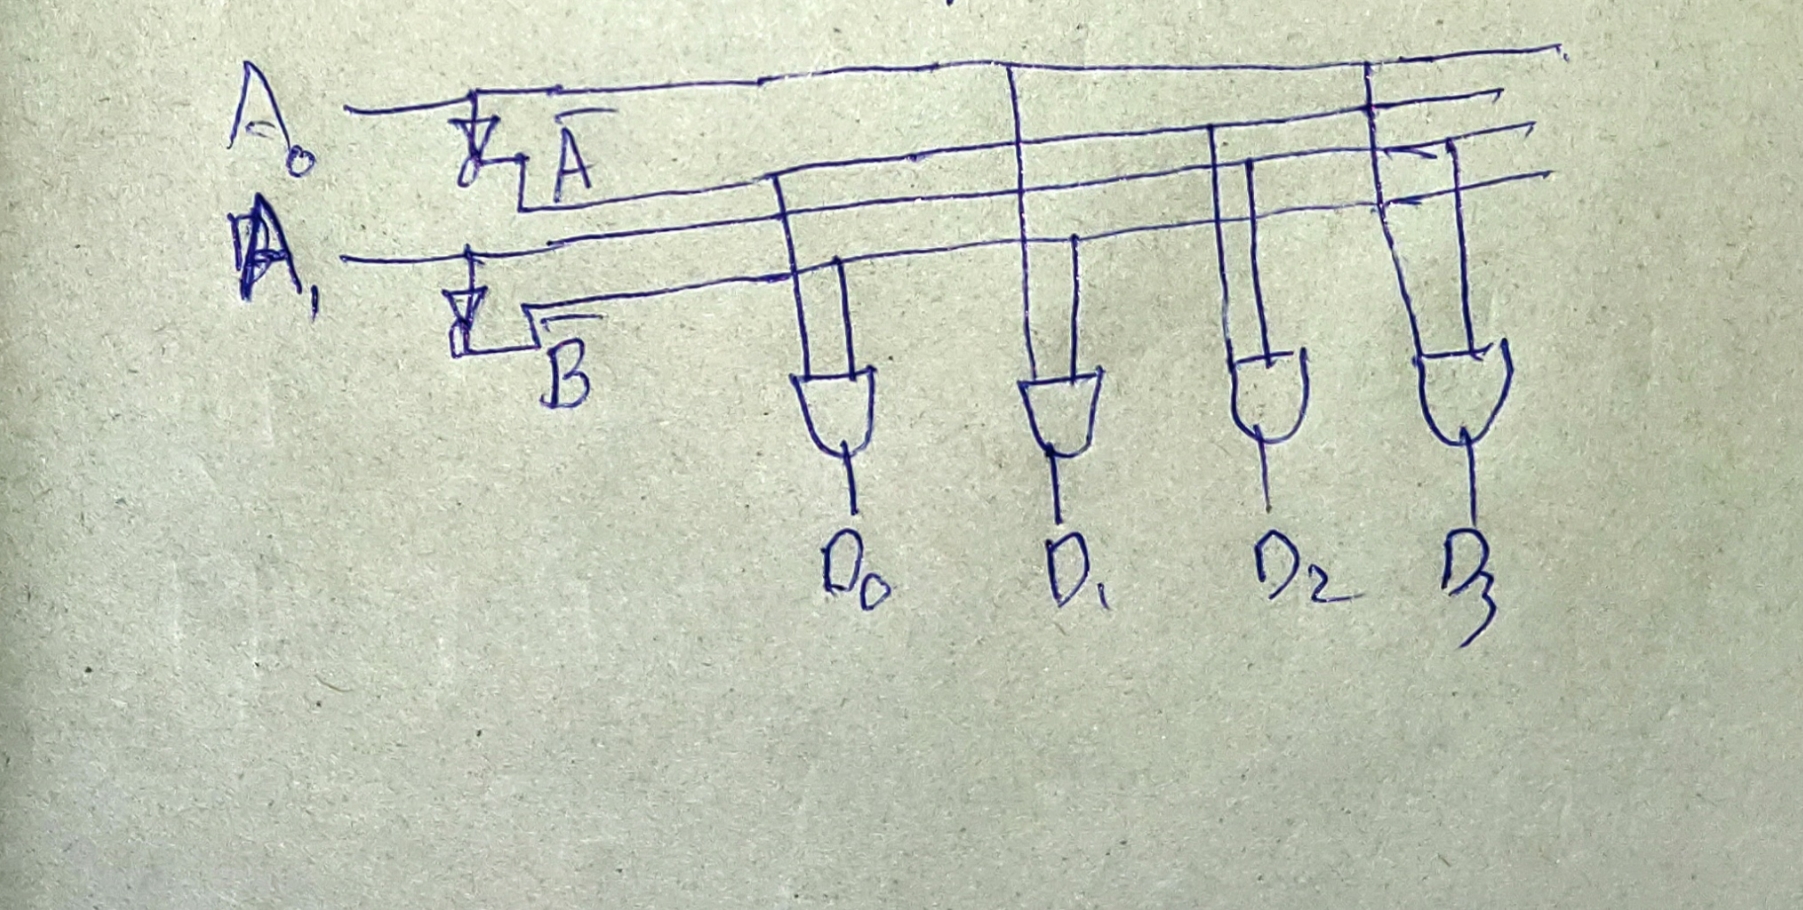 A₀
A̅
A₁
B̅
D₀ D₁ D₂ D₃